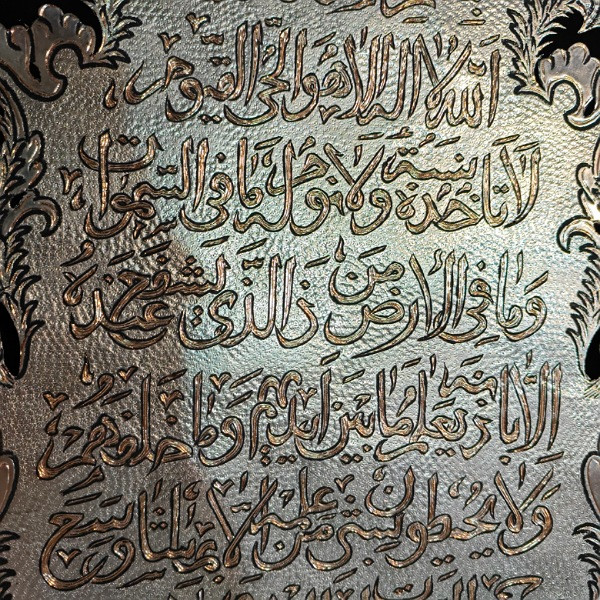 اللّٰه لا اله الا هو الحی القیوم
لا تاخذه سنة ولا نوم له ما فی السموات
وما فی الارض من ذالذی یشفع عنده
الا باذنه یعلم ما بین ایدیهم وما خلفهم
ولا یحیطون بشی من علمه الا بما شاء وسع